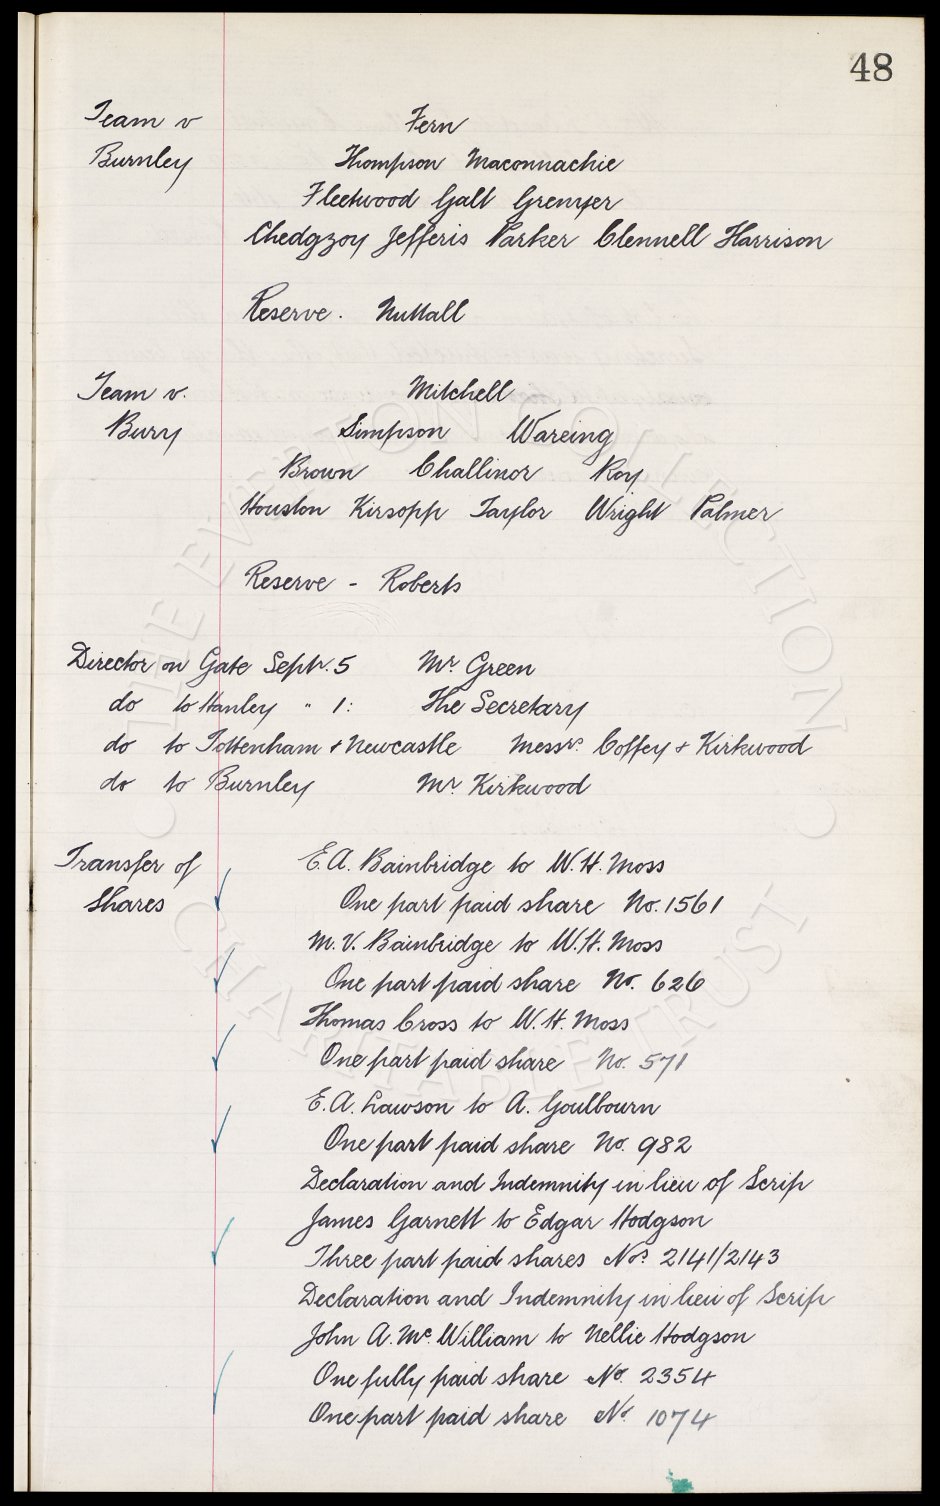 48
Team v Fern
Burnley Thompson Maconnachie
Fleetwood Galt Grenyer
Chedgzoy Jefferis Parker Clennell Harrison
Reserve. Nuttall
Team v. Mitchell
Bury Simpson Wareing
Brown Challinor Roy
Houston Kirsopp Taylor Wright Palmer
Reserve - Roberts
Director on Gate Septr. 5 Mr. Green
do to Hanley " 1: The Secretary
do to Tottenham & Newcastle Messrs. Coffey & Kirkwood
do to Burnley Mr. Kirkwood
Transfer of E.A. Bainbridge to W.H. Moss
Shares One part paid share No. 1561
M.V. Bainbridge to W.H. Moss
One part paid share No. 626
Thomas Cross to W.H. Moss
One part paid share No. 571
E.A. Lawson to A. Goulbourn
One part paid share No. 982
Declaration and Indemnity in lieu of Scrip
James Garnett to Edgar Hodgson
Three part paid shares Nos. 2141/2143
Declaration and Indemnity in lieu of Scrip
John A. Mc.William to Nellie Hodgson
One fully paid share No. 2354
One part paid share No. 1074
THE EVERTON COLLECTION
CHARITABLE TRUST